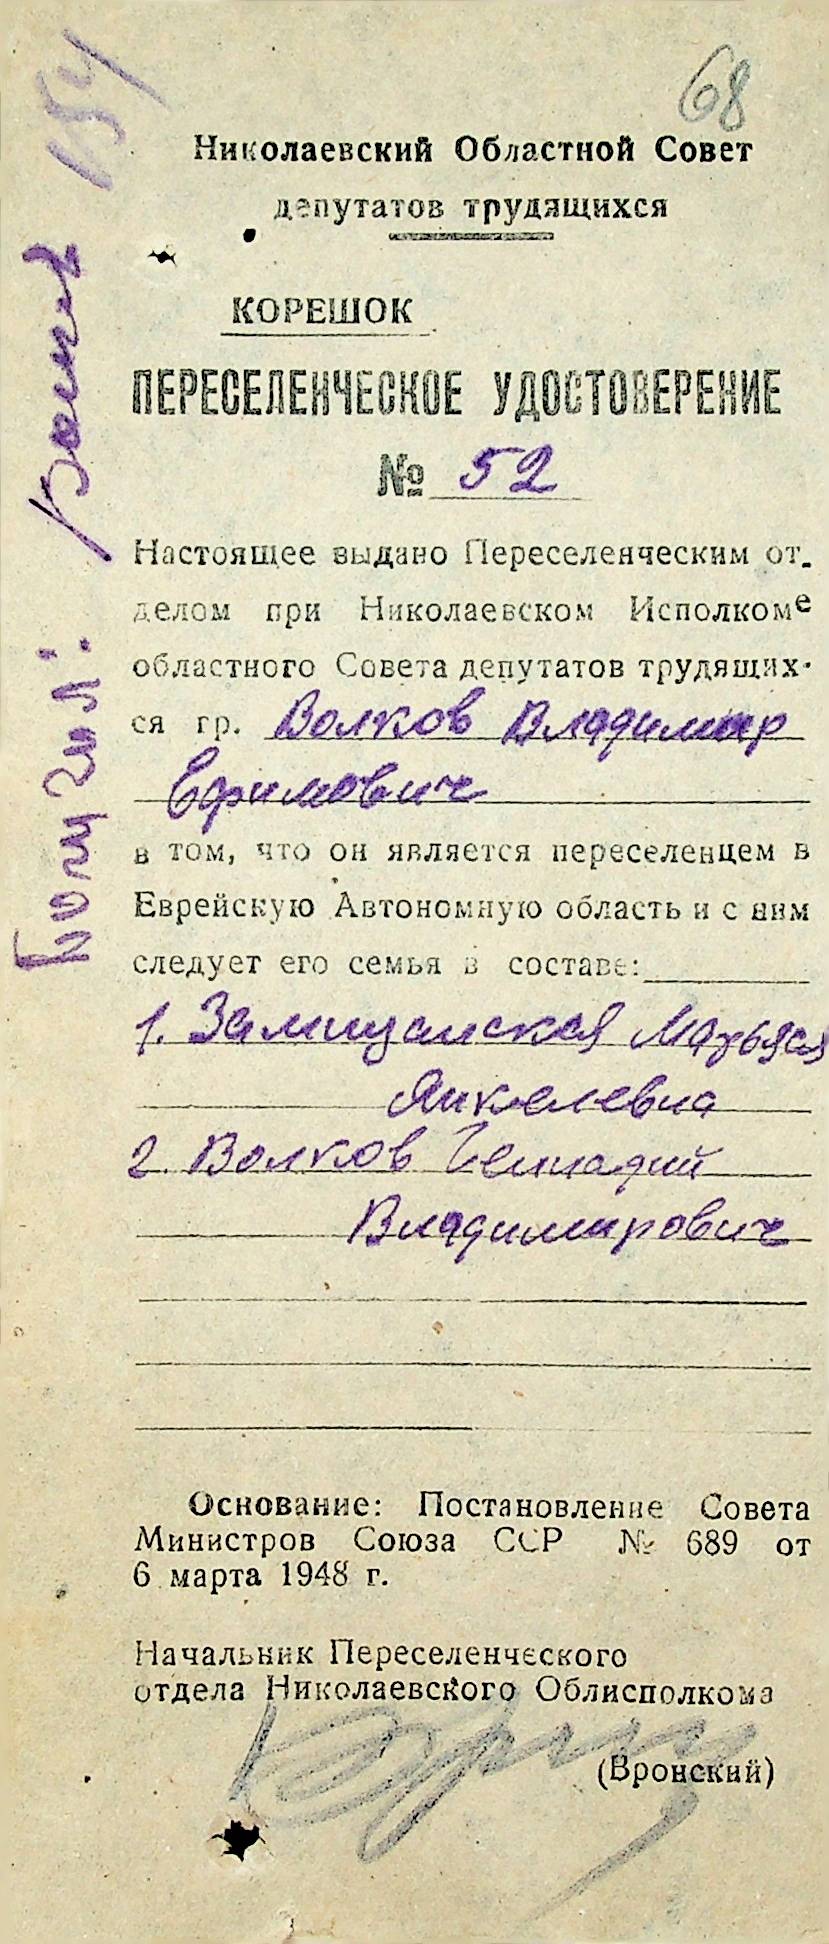 184
68
Николаевский Областной Совет
депутатов трудящихся
КОРЕШОК
ПЕРЕСЕЛЕНЧЕСКОЕ УДОСТОВЕРЕНИЕ
№ 52
Настоящее выдано Переселенческим от-
делом при Николаевском Исполкоме
областного Совета депутатов трудящих-
ся гр. Волков Владимир
Ефимович
в том, что он является переселенцем в
Еврейскую Автономную область и с ним
следует его семья в составе:
1. Замищанская
Янкелевна
2. Волков Геннадий
Владимирович
Основание: Постановление Совета
Министров Союза ССР № 689 от
6 марта 1948 г.
Начальник Переселенческого
отдела Николаевского Облисполкома
(Вронский)
Получил: